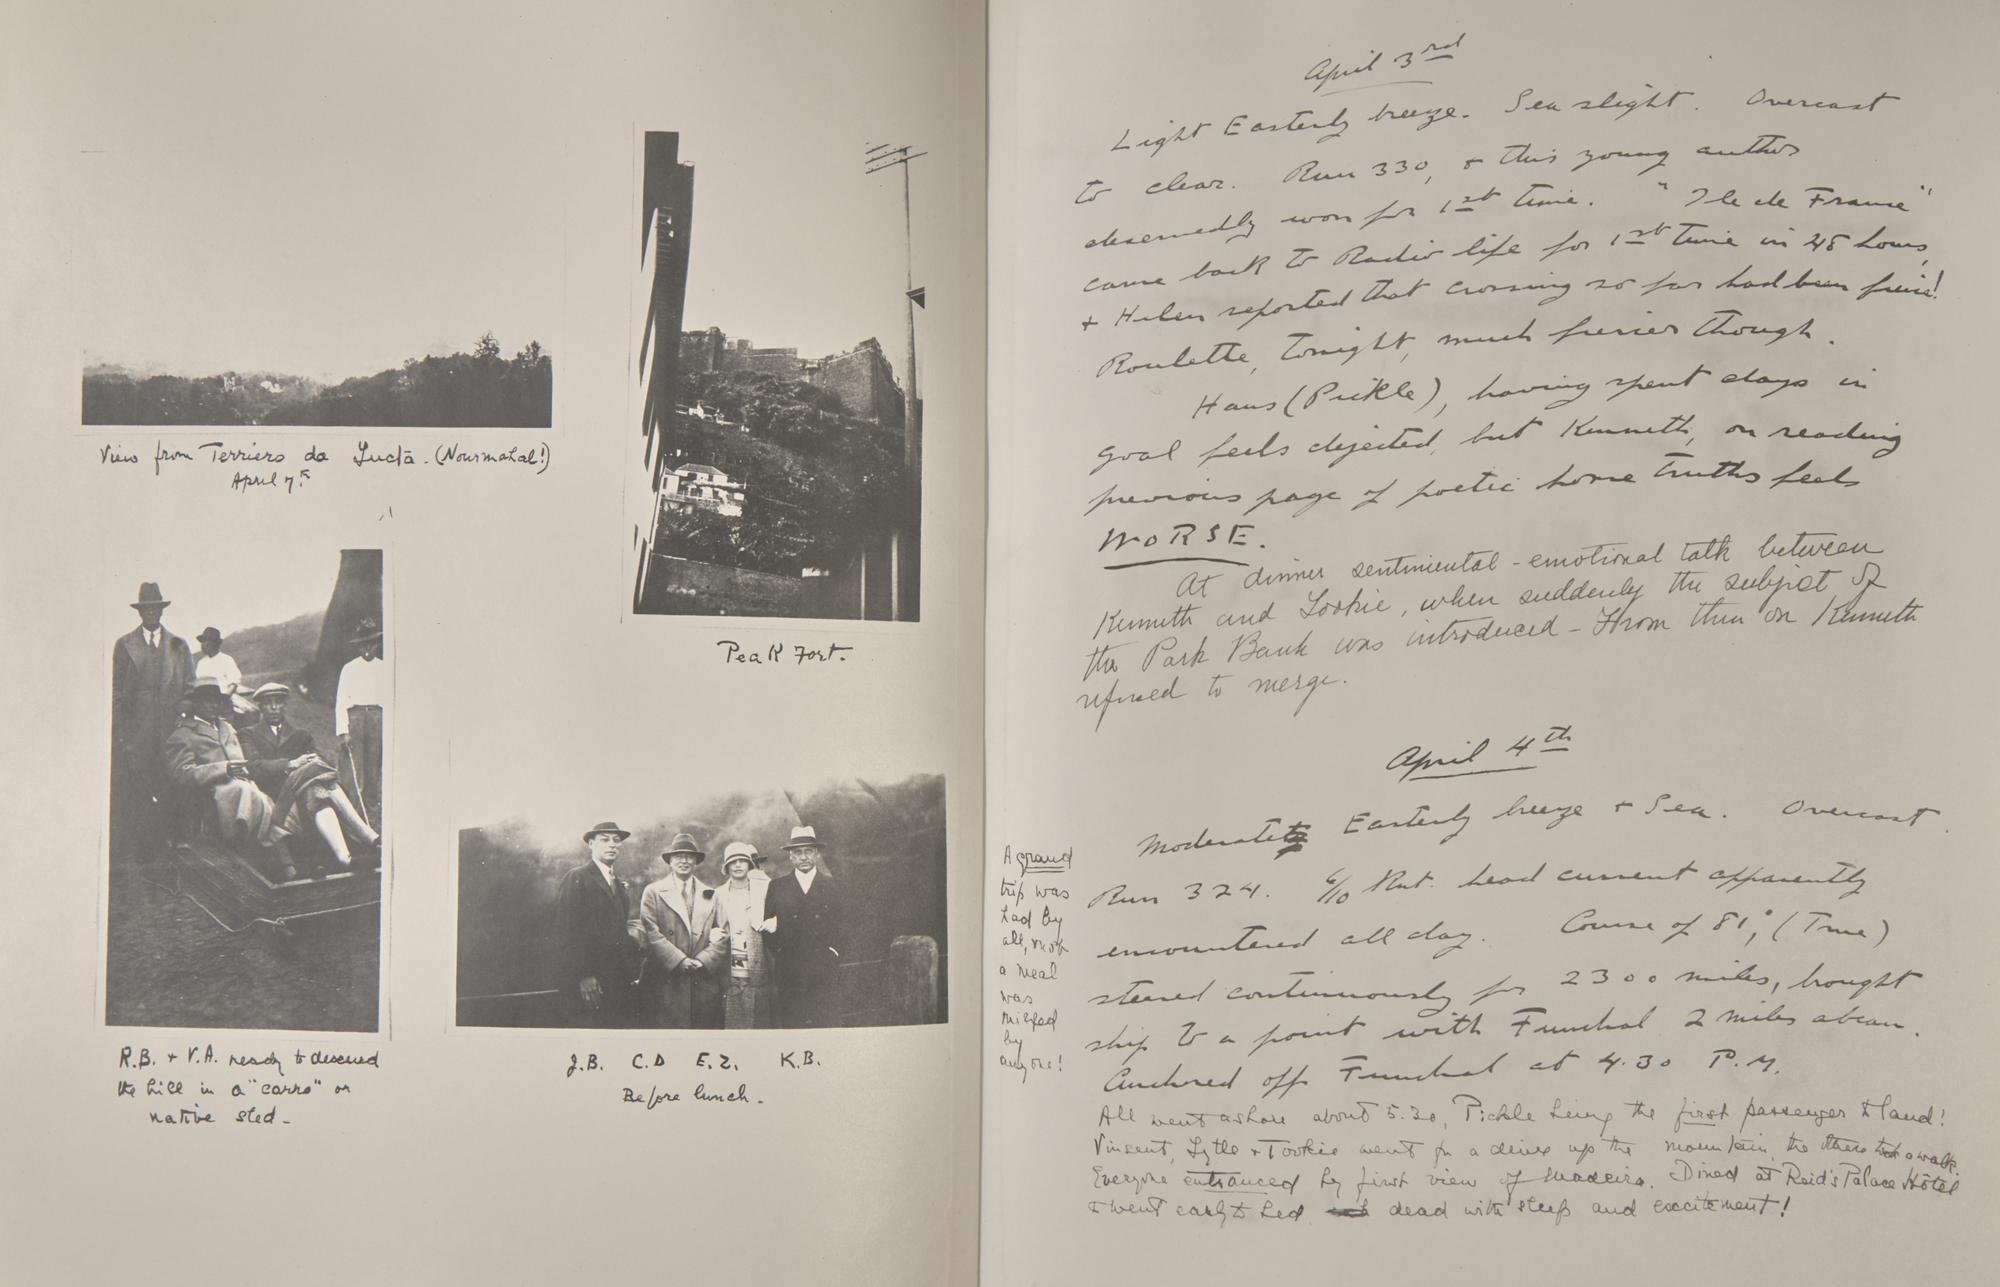 View from Terriero da Lucta. (Nourmahal!)
April 7th
Peak Fort.
R.B. + V.A. ready to descend
the hill in a "carro" or
native sled -
J.B. C.D E.Z. K.B.
Before lunch.
April 3rd
Light Easterly breeze. Sea slight. Overcast
to clear. Run 330, + this young author
deservedly won for 1st time. "Ile de France"
came back to Radio life for 1st time in 48 hours,
+ Helen reported that crossing so far had been fierce!
Roulette, tonight, much fiercer though.
Hans (Pickle), having spent days in
goal feels dejected, but Kenneth, on reading
previous page of poetic home truths feels
WORSE.
At dinner sentimental - emotional talk between
Kenneth and Tookie, when suddenly the subject of
the Park Bank was introduced - From then on Kenneth
refused to merge.
April 4th
Moderate Easterly breeze + Sea. Overcast.
Run 324. 6/10 Knt. head current apparently
encountered all day. Course of 81°, (True)
steered continuously for 2300 miles, brought
ship to a point with Funchal 2 miles abeam.
Anchored off Funchal at 4.30 P.M.
All went ashore about 5.30, Pickle being the first passenger to land!
Vincent, Lytle + Tookie went for a drive up the mountain, the others a walk.
Everyone entranced by first view of Madeira. Dined at Reid's Palace Hôtel
& went early to bed dead with sleep and excitement!
A grand
trip was
had by
all, not
a meal
was
missed
by
anyone!